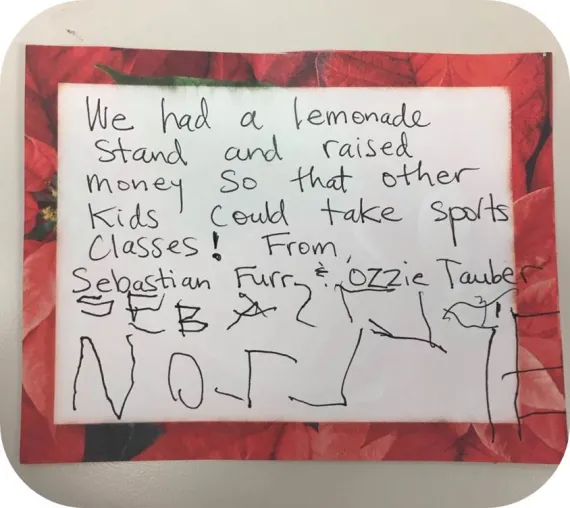 We had a lemonade
stand and raised
money so that other
Kids could take sports
Classes! From,
Sebastian Furr & OZZie Tauber